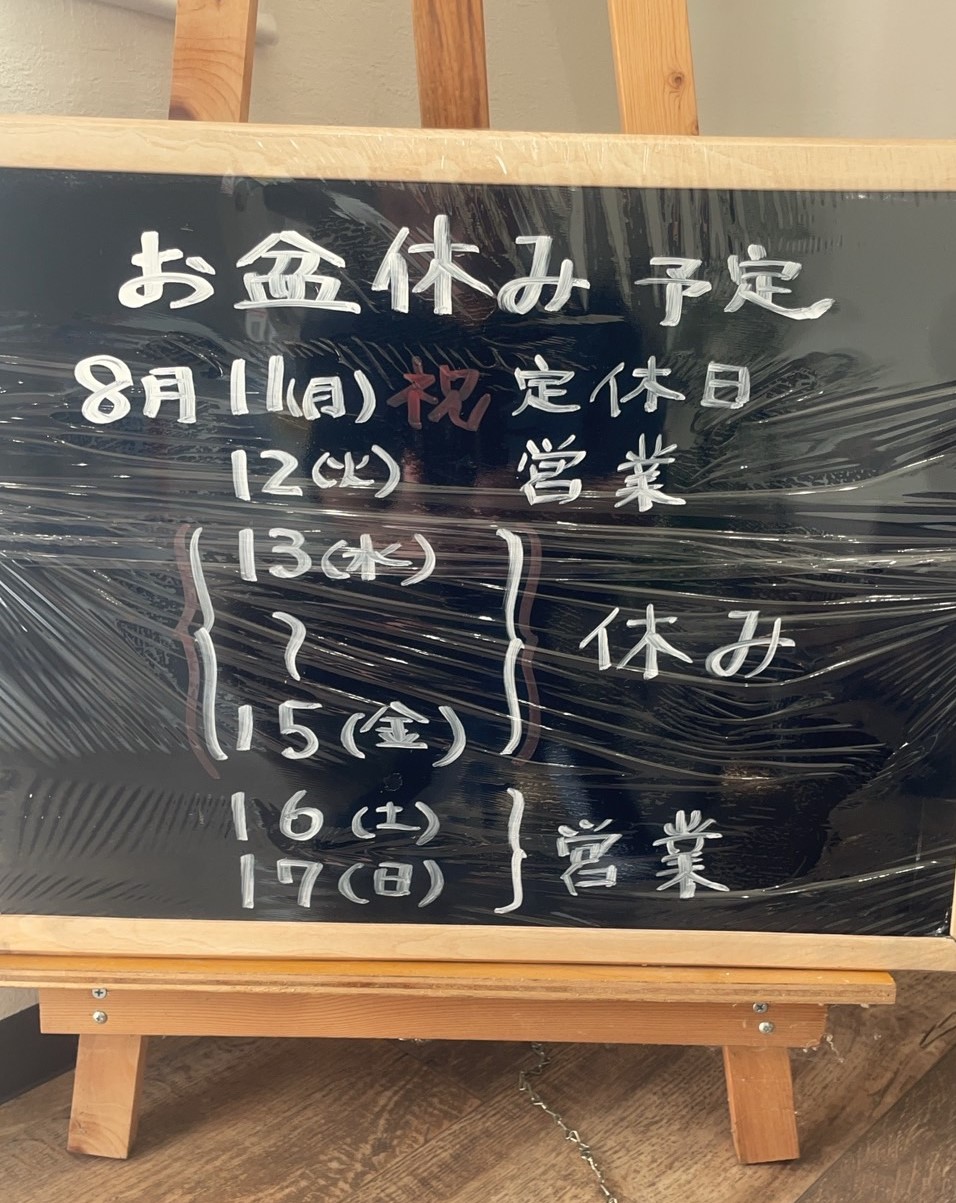 お盆休み 予定
8月11(月) 祝 定休日
12(火) 営業
13(水)
〜
15(金)
休み
16(土)
17(日)
営業